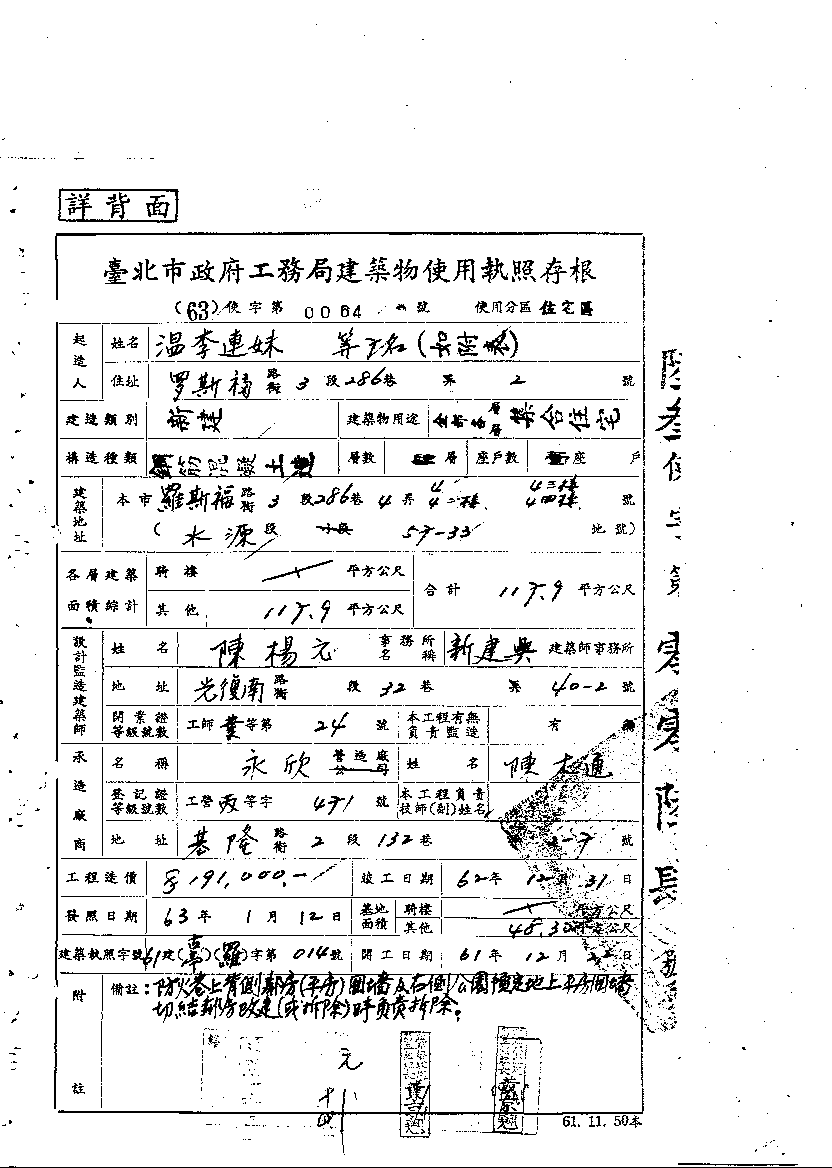 詳背面
臺北市政府工務局建築物使用執照存根
(63)使字第 0064 號 使用分區 住宅區
起造人 姓名 温李連妹 等 名
住址 罗斯福 路街 3 段 286 巷 弄 2 號
建造類別 新建 建築物用途 全部各層 集合住宅
構造種類 鋼筋混凝土造 層數 層 座戶數 座 戶
建築地址 本市 羅斯福 路街 3 段 286 巷 4 弄 4 4二樓 4三樓 4四樓 號
( 水源 段 小段 57-33 地號)
各層建築面積綜計 騎樓 平方公尺 合計 117.9 平方公尺
其他 117.9 平方公尺
設計監造建築師 姓名 陳楊元 事務所名稱 新建興 建築師事務所
地址 光復南 路街 段 32 巷 弄 40-2 號
開業證等級號數 工師 業 等第 24 號 本工程有無負責監造 有
承造廠商 名稱 永欣 營造廠公司 姓名 陳木通
登記證等級號數 工營 丙 等字 471 號 本工程負責技師(副)姓名
地址 基隆 路街 2 段 132 巷 號
工程造價 191,000.- 竣工日期 62 年 12 月 31 日
發照日期 63 年 1 月 12 日 基地面積 騎樓 平方公尺
其他 48.30 平方公尺
建築執照字號 61 建( )(羅)字第 014 號 開工日期 61 年 12 月 22 日
附註 備註:防火巷上背側鄰房(平房)圍墻及右側公園預定地上平房圍墻
切結鄰房改建(或拆除)時負責拆除。
元
十四
61.11.50本
陸叁使字第零零陸肆號